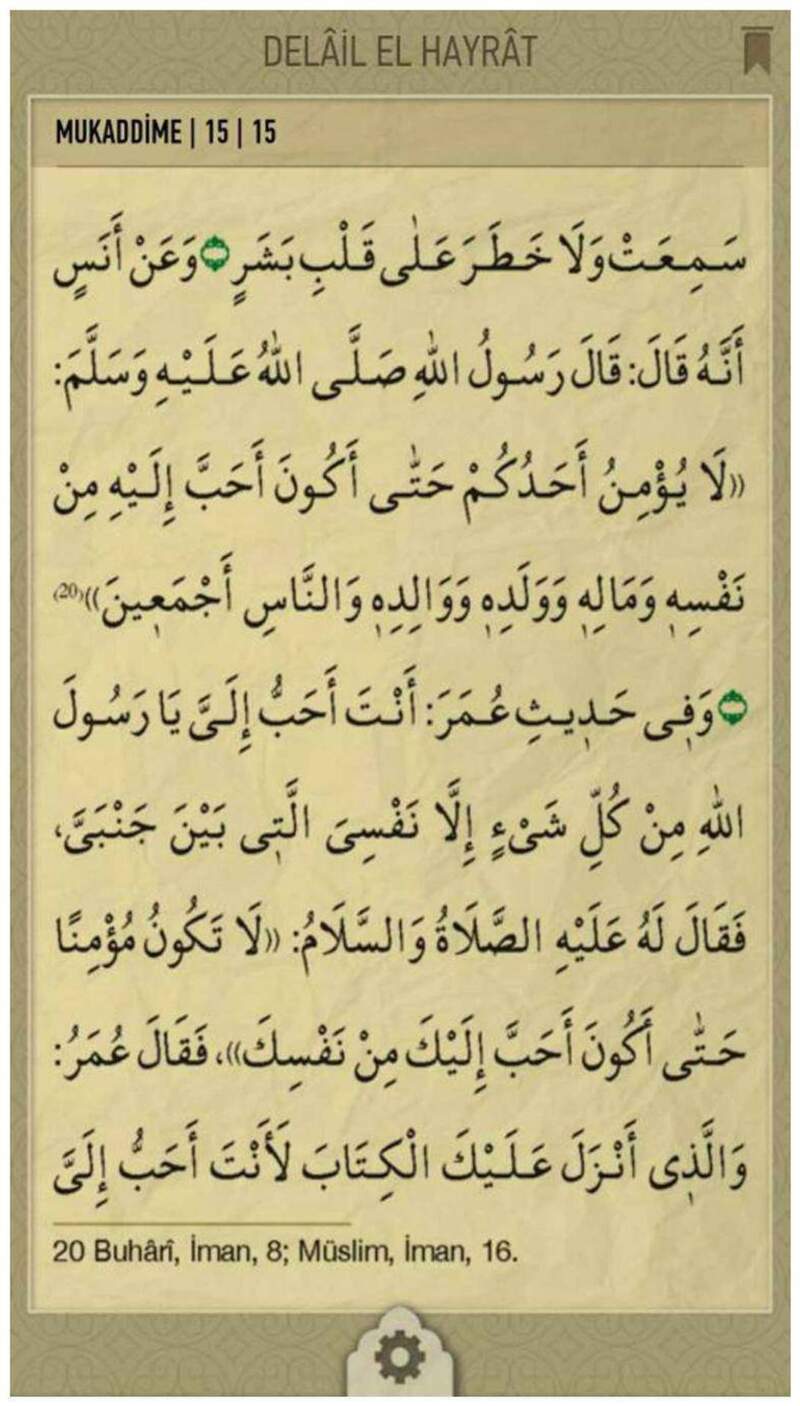 DELÂİL EL HAYRÂT
MUKADDİME | 15 | 15
سَمِعَتْ وَلَا خَطَرَ عَلٰى قَلْبِ بَشَرٍ وَعَنْ أَنَسٍ
أَنَّهُ قَالَ: قَالَ رَسُولُ اللهِ صَلَّى اللهُ عَلَيْهِ وَسَلَّمَ:
«لَا يُؤْمِنُ أَحَدُكُمْ حَتّٰى أَكُونَ أَحَبَّ إِلَيْهِ مِنْ
نَفْسِهٖ وَمَالِهٖ وَوَلَدِهٖ وَوَالِدِهٖ وَالنَّاسِ أَجْمَعٖينَ»(20)
وَفٖى حَدٖيثِ عُمَرَ: أَنْتَ أَحَبُّ إِلَىَّ يَا رَسُولَ
اللهِ مِنْ كُلِّ شَىْءٍ إِلَّا نَفْسِىَ الَّتٖى بَيْنَ جَنْبَىَّ،
فَقَالَ لَهُ عَلَيْهِ الصَّلَاةُ وَالسَّلَامُ: «لَا تَكُونُ مُؤْمِنًا
حَتّٰى أَكُونَ أَحَبَّ إِلَيْكَ مِنْ نَفْسِكَ»، فَقَالَ عُمَرُ:
وَالَّذٖى أَنْزَلَ عَلَيْكَ الْكِتَابَ لَأَنْتَ أَحَبُّ إِلَىَّ
20 Buhârî, İman, 8; Müslim, İman, 16.